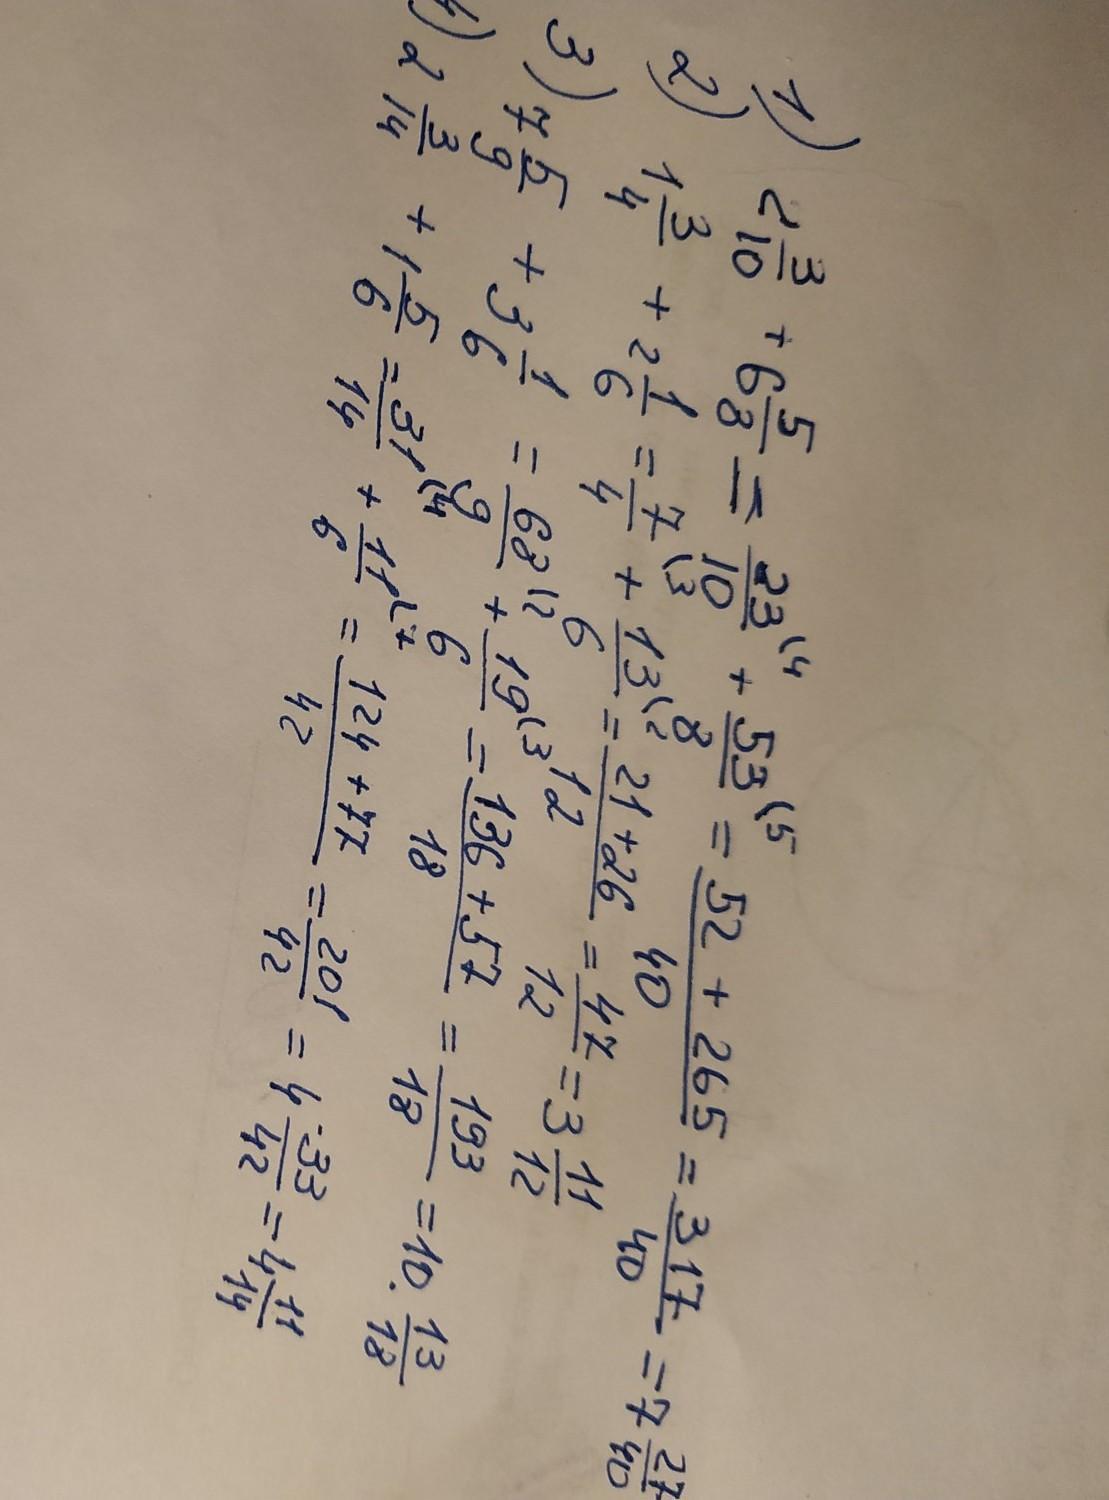 1) 2 3/10 + 6 5/8 = 23/10 (4 + 53/8 (5 = 52 + 265/40 = 317/40 = 7 27/40
2) 1 3/4 + 2 1/6 = 7/4 (3 + 13/6 (2 = 21 + 26/12 = 47/12 = 3 11/12
3) 7 5/9 + 3 1/6 = 68/9 (2 + 19/6 (3 = 136 + 57/18 = 193/18 = 10. 13/18
4) 2 3/14 + 1 5/6 = 31/14 (4 + 11/6 (7 = 124 + 77/42 = 201/42 = 4 33/42 = 4 11/14